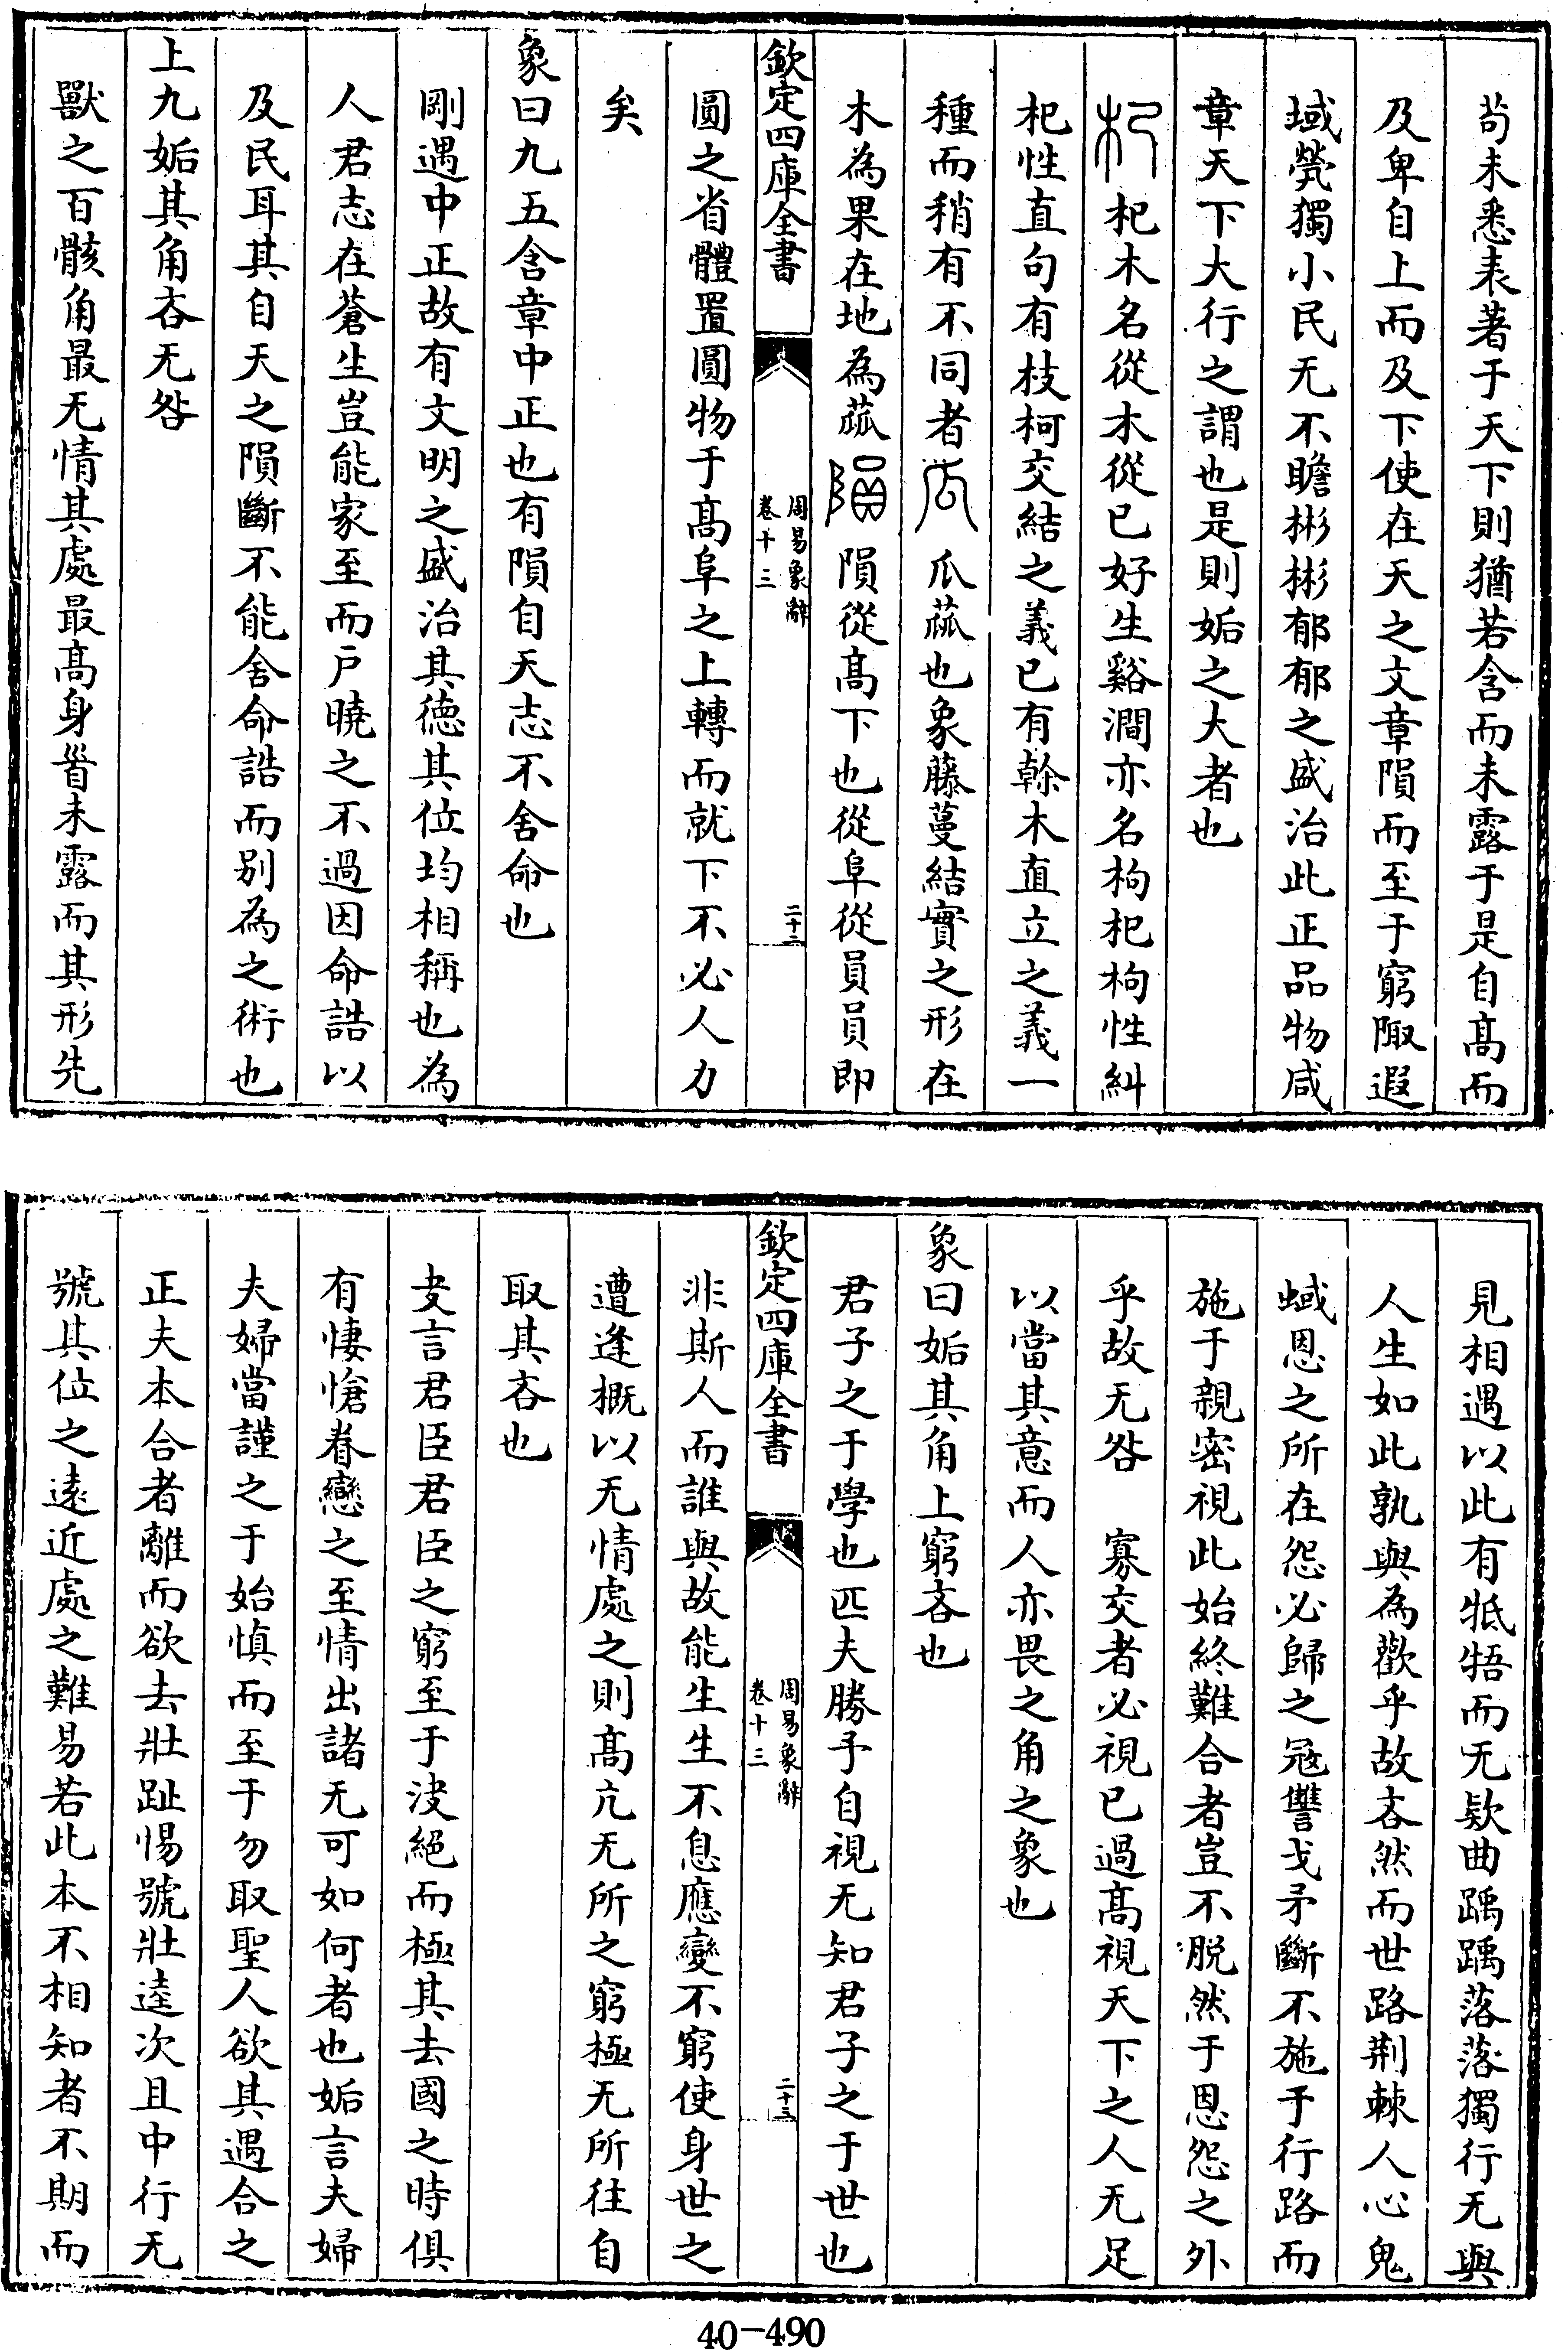 苟未悉表著于天下則猶若含而未露于是自髙而
及卑自上而及下使在天之文章隕而至于窮陬遐
域煢獨小民无不瞻彬彬郁郁之盛治此正品物咸
章天下大行之謂也是則姤之大者也
杞杞木名從木從已好生谿澗亦名枸杞枸性糾
杞性直句有枝柯交結之義已有榦木直立之義一
種而稍有不同者瓜瓜蓏也象藤蔓結實之形在
木為果在地為蓏隕隕從髙下也從阜從員員即
欽定四庫全書
周易象辭
卷十三
二十二
圓之省體置圓物于髙阜之上轉而就下不必人力
矣
象曰九五含章中正也有隕自天志不舍命也
剛遇中正故有文明之盛治其徳其位均相稱也為
人君志在蒼生豈能家至而戸曉之不過因命誥以
及民耳其自天之隕斷不能舍命誥而别為之術也
上九姤其角吝无咎
獸之百骸角最无情其處最髙身首未露而其形先
見相遇以此有牴牾而无欵曲踽踽落落獨行无與
人生如此孰與為歡乎故吝然而世路荆棘人心鬼
蜮恩之所在怨必歸之冦讐戈矛斷不施于行路而
施于親宻視此始終難合者豈不脱然于恩怨之外
乎故无咎　寡交者必視已過髙視天下之人无足
以當其意而人亦畏之角之象也
象曰姤其角上窮吝也
君子之于學也匹夫勝予自視无知君子之于世也
欽定四庫全書
周易象辭
卷十三
二十三
非斯人而誰與故能生生不息應變不窮使身世之
遭逢概以无情處之則髙亢无所之窮極无所往自
取其吝也
夬言君臣君臣之窮至于決絶而極其去國之時俱
有悽愴眷戀之至情出諸无可如何者也姤言夫婦
夫婦當謹之于始慎而至于勿取聖人欲其遇合之
正夫本合者離而欲去壯趾惕號壯逵次且中行无
號其位之遠近處之難易若此本不相知者不期而
40-490